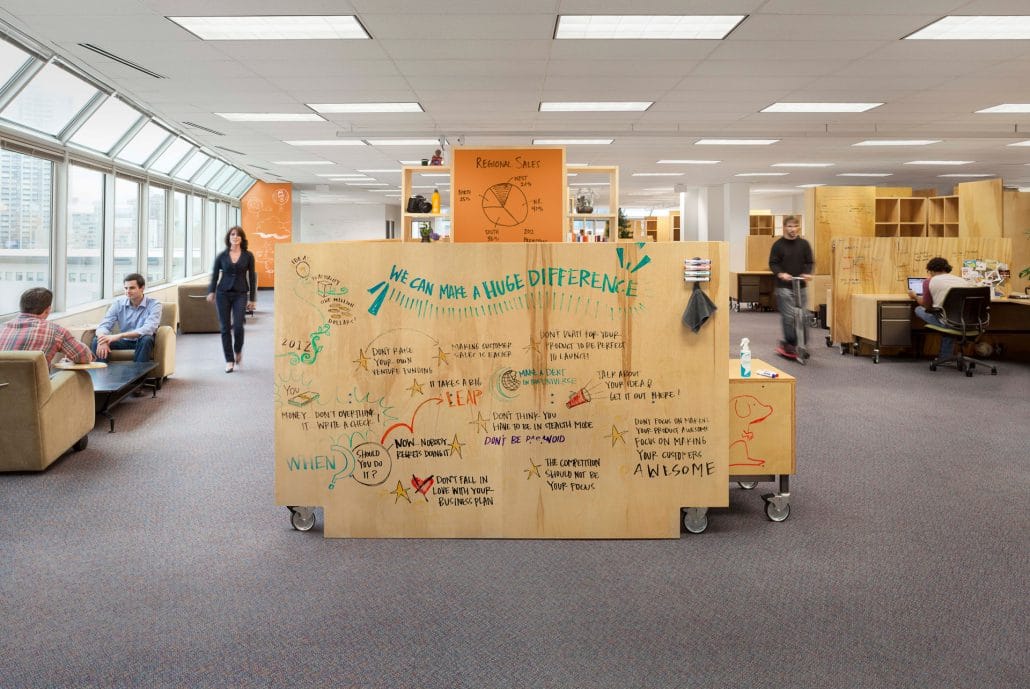 REGIONAL SALES
WEST
NORTH
25%
SOUTH
2012
WE CAN MAKE A HUGE DIFFERENCE
ONE MILLION
DOLLARS!
2012
DON'T RAISE
YOUR OWN
VENTURE FUNDING
MAKING CUSTOMER
SALES IS EASIER
DON'T WAIT FOR YOUR
PRODUCT TO BE PERFECT
TO LAUNCH!
IT TAKES A BIG
LEAP
MAKE A DENT
IN THE UNIVERSE
TALK ABOUT
YOUR IDEA &
GET IT OUT THERE!
YOU
MONEY. DON'T OVERTHINK
IT. WRITE A CHECK!
DON'T THINK YOU
HAVE TO BE IN STEALTH MODE
DON'T BE PARANOID
DON'T FOCUS ON MAKING
YOUR PRODUCT AWESOME
FOCUS ON MAKING
YOUR CUSTOMERS
AWESOME
WHEN?
SHOULD
YOU DO
IT?
NOW. NOBODY
REGRETS DOING IT
THE COMPETITION
SHOULD NOT BE
YOUR FOCUS
DON'T FALL IN
LOVE WITH YOUR
BUSINESS PLAN